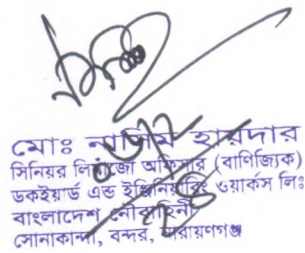 মোঃ নাজিম হায়দার
সিনিয়র লিয়াজো অফিসার (বাণিজ্যিক)
ডকইয়ার্ড এন্ড ইঞ্জিনিয়ারিং ওয়ার্কস লিঃ
বাংলাদেশ নৌবাহিনী
সোনাকান্দা, বন্দর, নারায়ণগঞ্জ